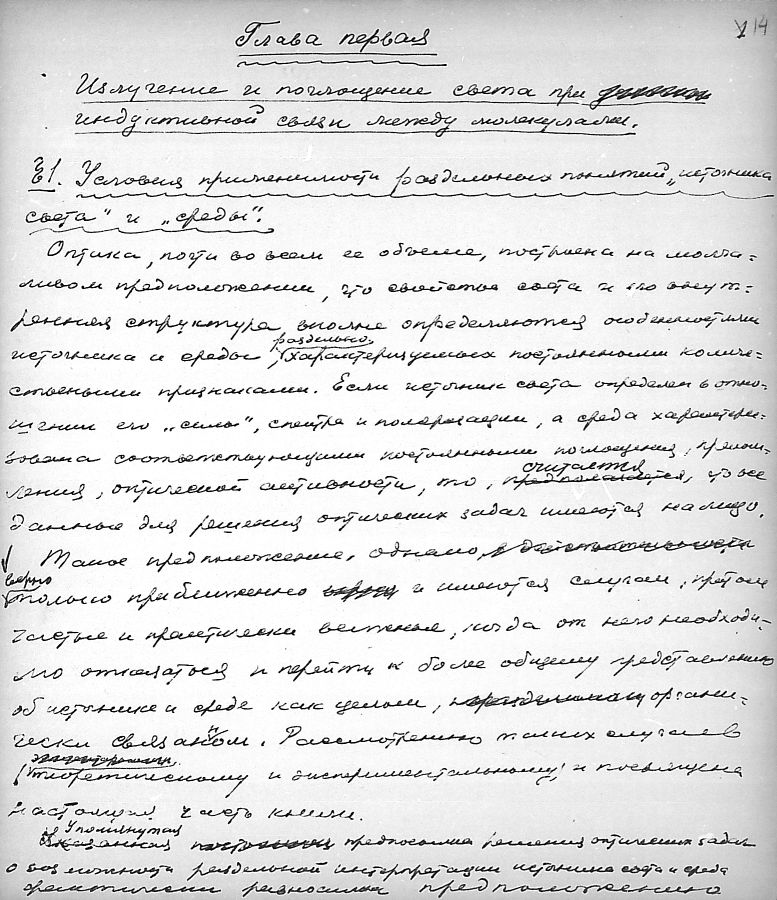 14
Глава первая
Излучение и поглощение света при
индуктивной связи между молекулами.
§1. Условия применимости раздельных понятий „источника
света“ и „среды“.
Оптика, почти во всем ее объеме, построена на молча-
ливом предположении, что свойства света и его внут-
ренняя структура вполне определяются особенностями
раздельно
источника и среды, характеризуемых постоянными количе-
ственными признаками. Если источник света определен в отно-
шении его „силы“, спектра и поляризации, а среда характери-
зована соответствующими постоянными поглощения, прелом-
считается
ления, оптической активности, то, предполагается, что все
данные для решения оптических задач имеются налицо.
Такое предположение, однако, в действительности
верно
только приближенно и имеются случаи, притом
частые и практически важные, когда от него необходи-
мо отказаться и перейти к более общему представлению
об источнике и среде как целом, органи-
чески связанном. Рассмотрению таких случаев
теоретическому и экспериментальному, и посвящена
настоящая часть книги.
Упомянутая
Указанная предпосылка решения оптических задач
о возможности раздельной интерпретации источника света и среды
фактически равносильна предположению